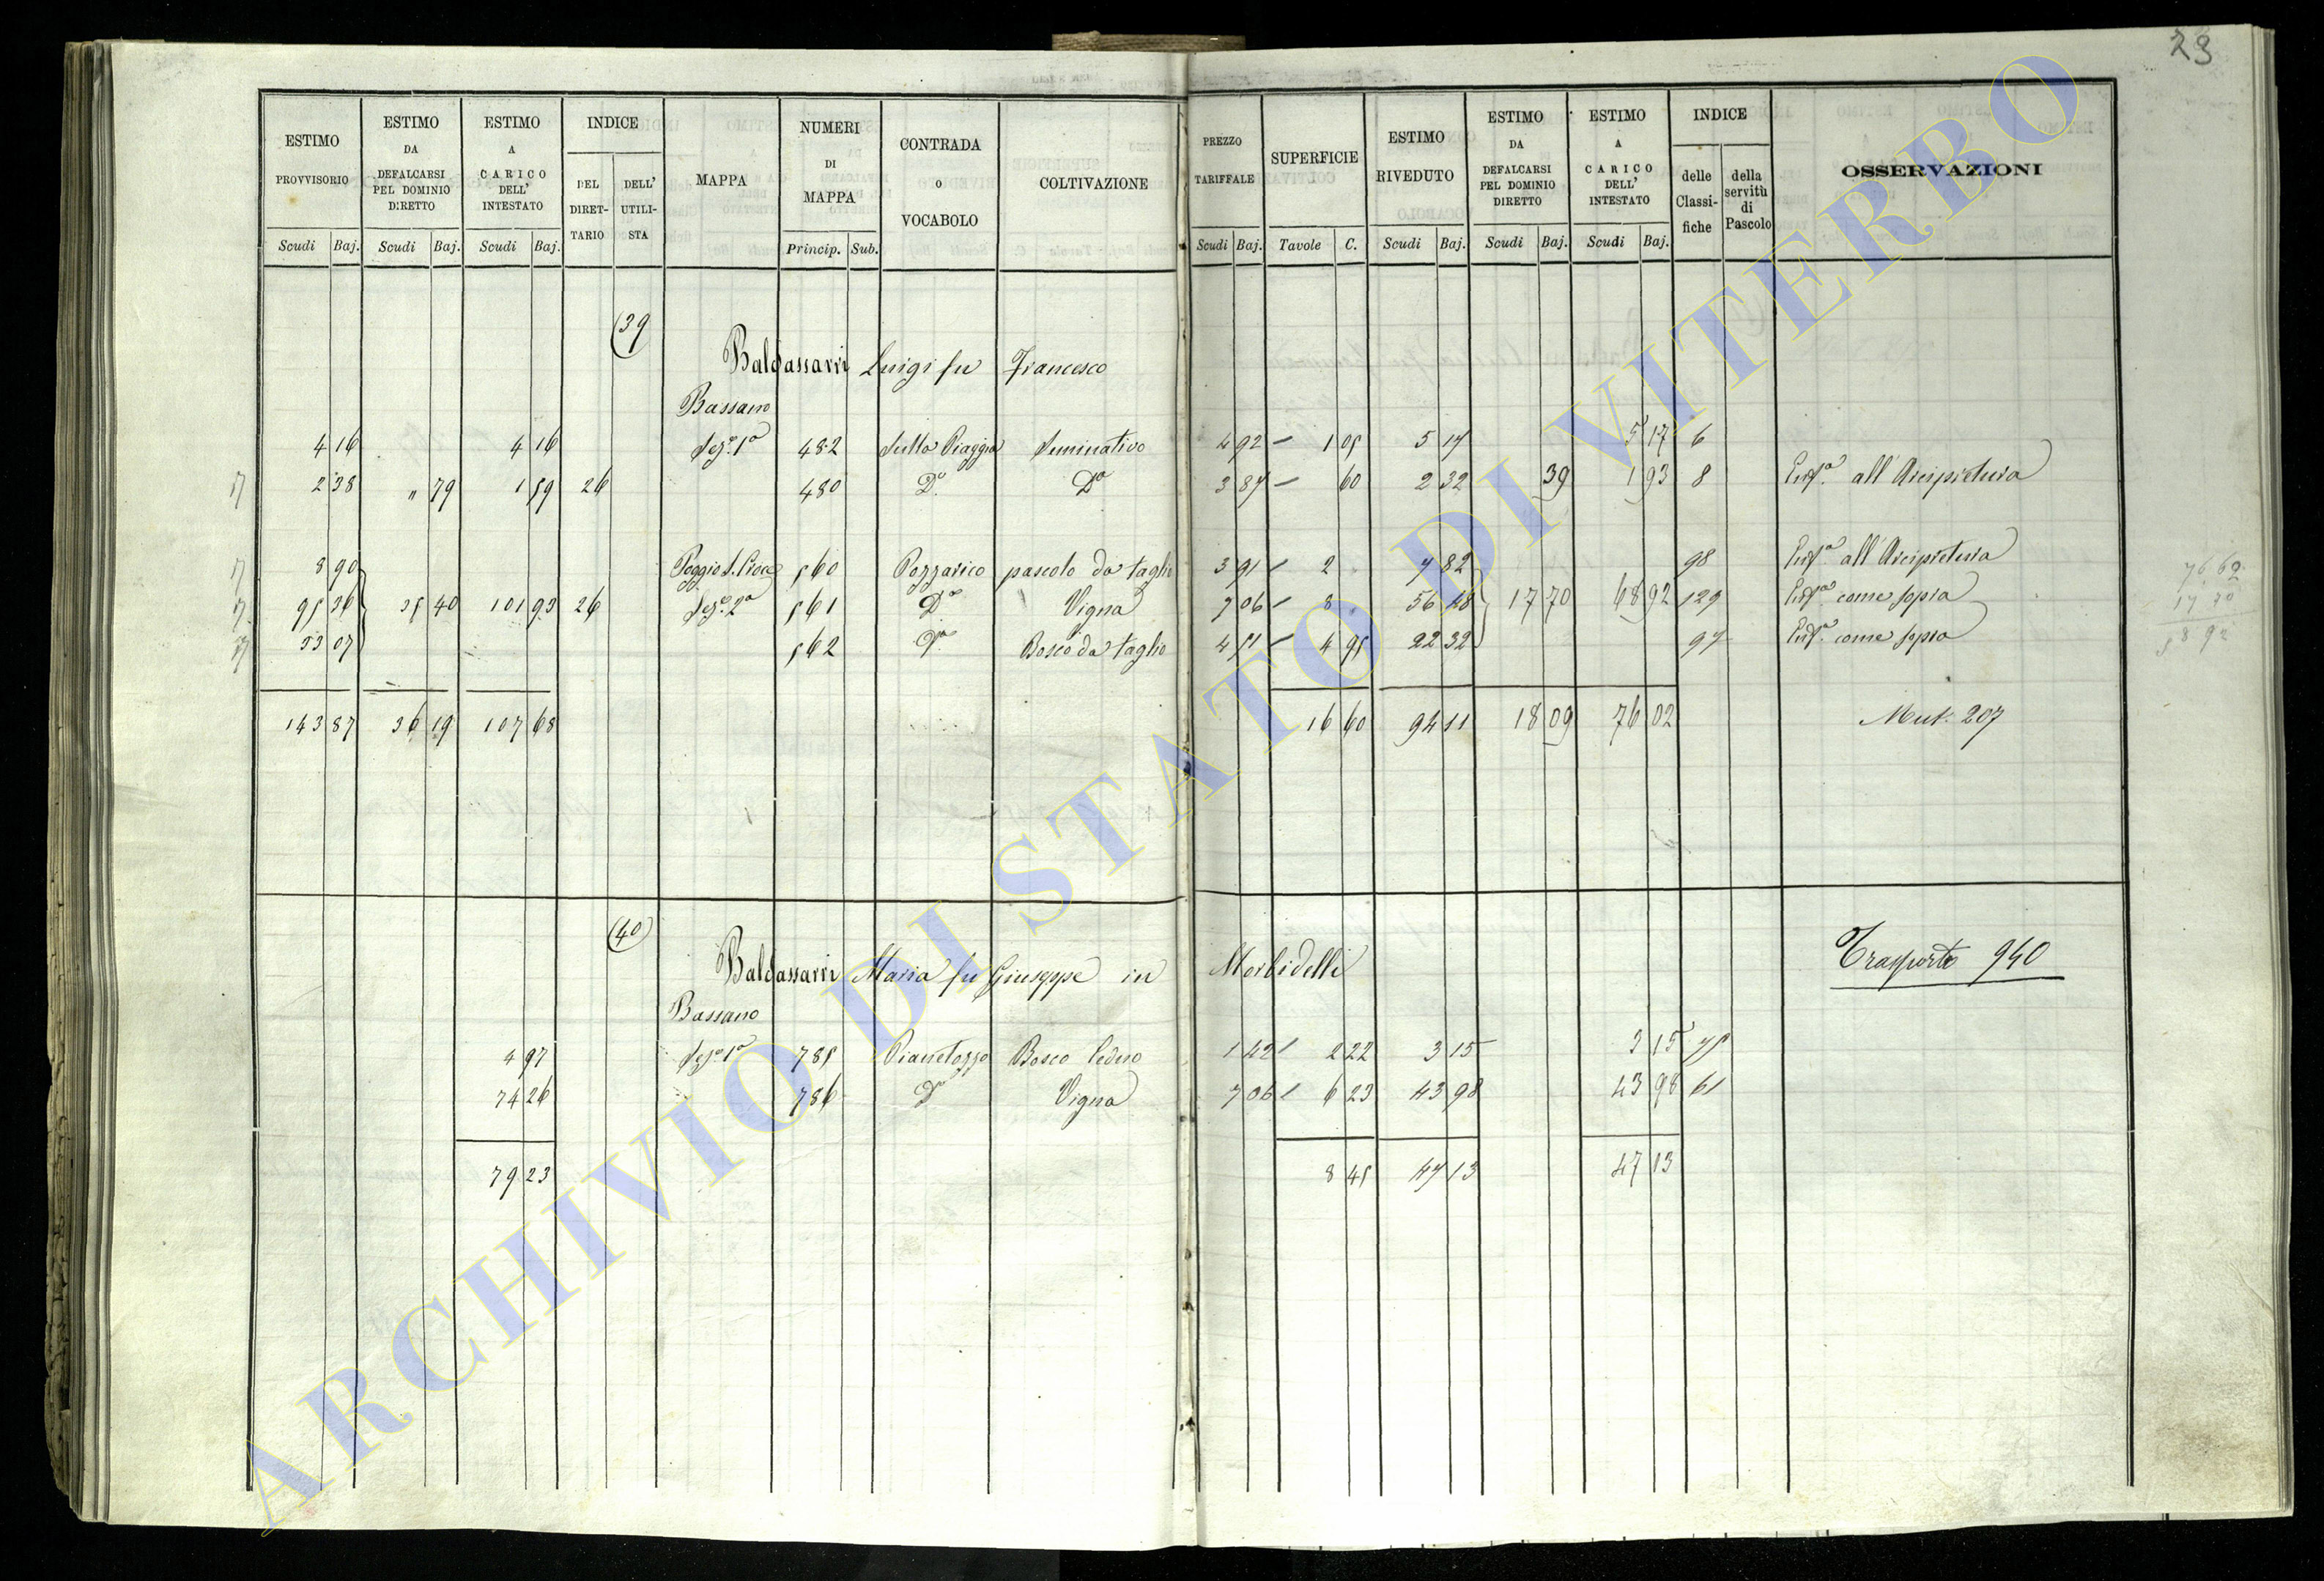 23
ESTIMO PROVVISORIO ESTIMO DA DEFALCARSI PEL DOMINIO DIRETTO ESTIMO A CARICO DELL' INTESTATO INDICE DEL DIRET-TARIO DELL' UTILI-STA MAPPA NUMERI DI MAPPA CONTRADA O VOCABOLO COLTIVAZIONE PREZZO TARIFFALE SUPERFICIE ESTIMO RIVEDUTO ESTIMO DA DEFALCARSI PEL DOMINIO DIRETTO ESTIMO A CARICO DELL' INTESTATO INDICE delle Classi-fiche della servitù di Pascolo OSSERVAZIONI
Scudi Baj. Scudi Baj. Scudi Baj. Princip. Sub. Scudi Baj. Tavole C. Scudi Baj. Scudi Baj. Scudi Baj.
39
Baldassarri Luigi fu Francesco
Bassano
4 16 4 16 Sez.e 1a 482 Sulla Piaggia Seminativo 4 92 1 05 5 17 5 17 6
17 2 38 " 79 1 59 26 480 Do Do 3 87 60 2 32 39 1 93 8 Enf.a all'Arcipretura
17 8 90 560 Pozzarico pascolo da taglio 3 91 2 7 82 98 Enf.a all'Arcipretura
17 95 36 35 40 101 93 26 Sez.e 2a 561 Do Vigna 7 06 8 56 48 17 70 68 92 129 Enf.a come sopra
17 33 07 562 Do Bosco da taglio 4 51 4 95 22 32 97 Enf.a come sopra
143 87 36 19 107 68 16 60 94 11 18 09 76 02 Mut. 207
40
Baldassarri Maria fu Giuseppe in Morbidelli Trasporto 940
Bassano
4 97 Sez.e 1a 785 Pianetozzo Bosco Ceduo 1 42 2 22 3 15 3 15 75
74 26 786 Do Vigna 7 06 6 23 43 98 43 98 61
79 23 8 45 47 13 47 13
ARCHIVIO DI STATO DI VITERBO